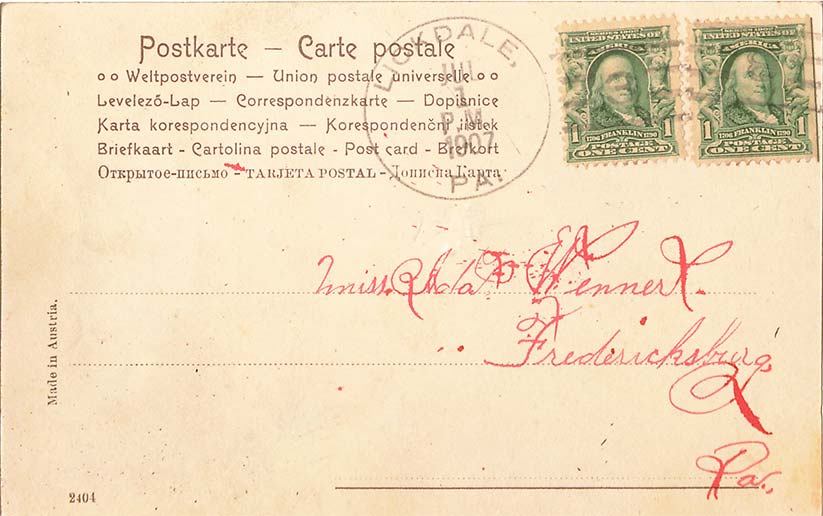 Postkarte — Carte postale
Weltpostverein — Union postale universelle
Levelező-Lap — Correspondenzkarte — Dopisnice
Karta korespondencyjna — Korespondenční lístek
Briefkaart - Cartolina postale - Post card - Brefkort
Открытое-письмо - TARJETA POSTAL - Дописна Карта
LICKDALE,
1
P.M.
1907
PA.
SERIES 1902
UNITED STATES OF
AMERICA
1 1706 FRANKLIN 1790 1
POSTAGE
ONE CENT
SERIES 1902
UNITED STATES OF
AMERICA
1 1706 FRANKLIN 1790 1
POSTAGE
ONE CENT
Miss. Ida Wennert.
Fredericksburg
Pa.,
Made in Austria.
2404